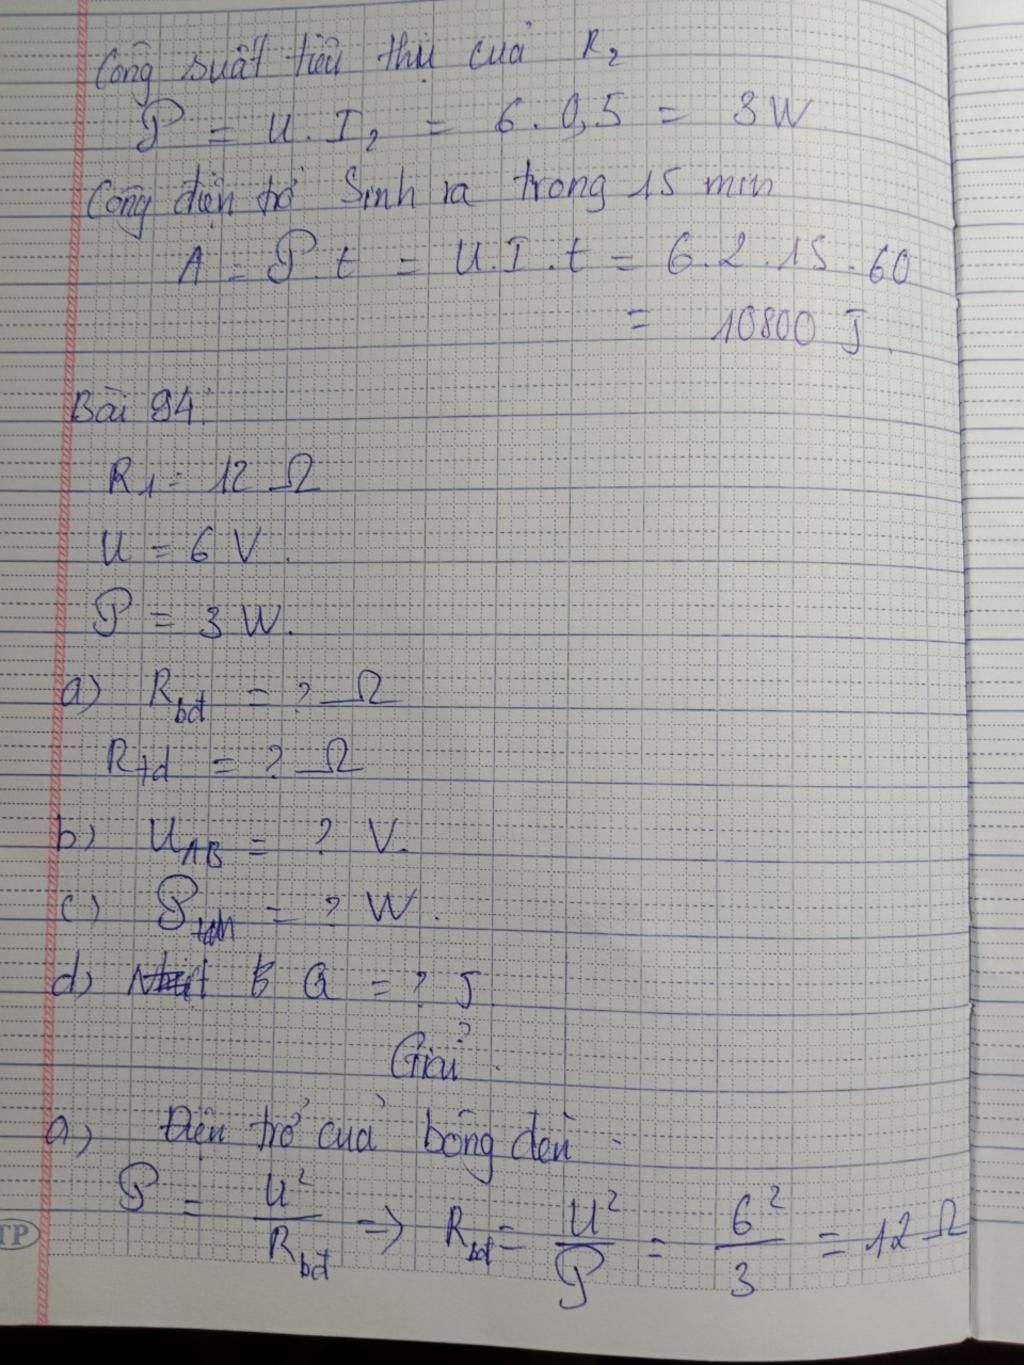 Công suất tiêu thụ của R₂
P = U.I₂ = 6.0,5 = 3W
Công điện trở sinh ra trong 15 min
A = P.t = U.I.t = 6.2.15.60
= 10800 J.
Bài 94:
R₁ = 12 Ω
U = 6 V.
P = 3 W.
a) R_bđ = ? Ω
R_tđ = ? Ω
b) U_AB = ? V.
c) P = ? W.
d) Q = ? J
Giải
a) Điện trở của bóng đèn:
P = U²/R_bđ => R_bđ = U²/P = 6²/3 = 12 Ω
TP